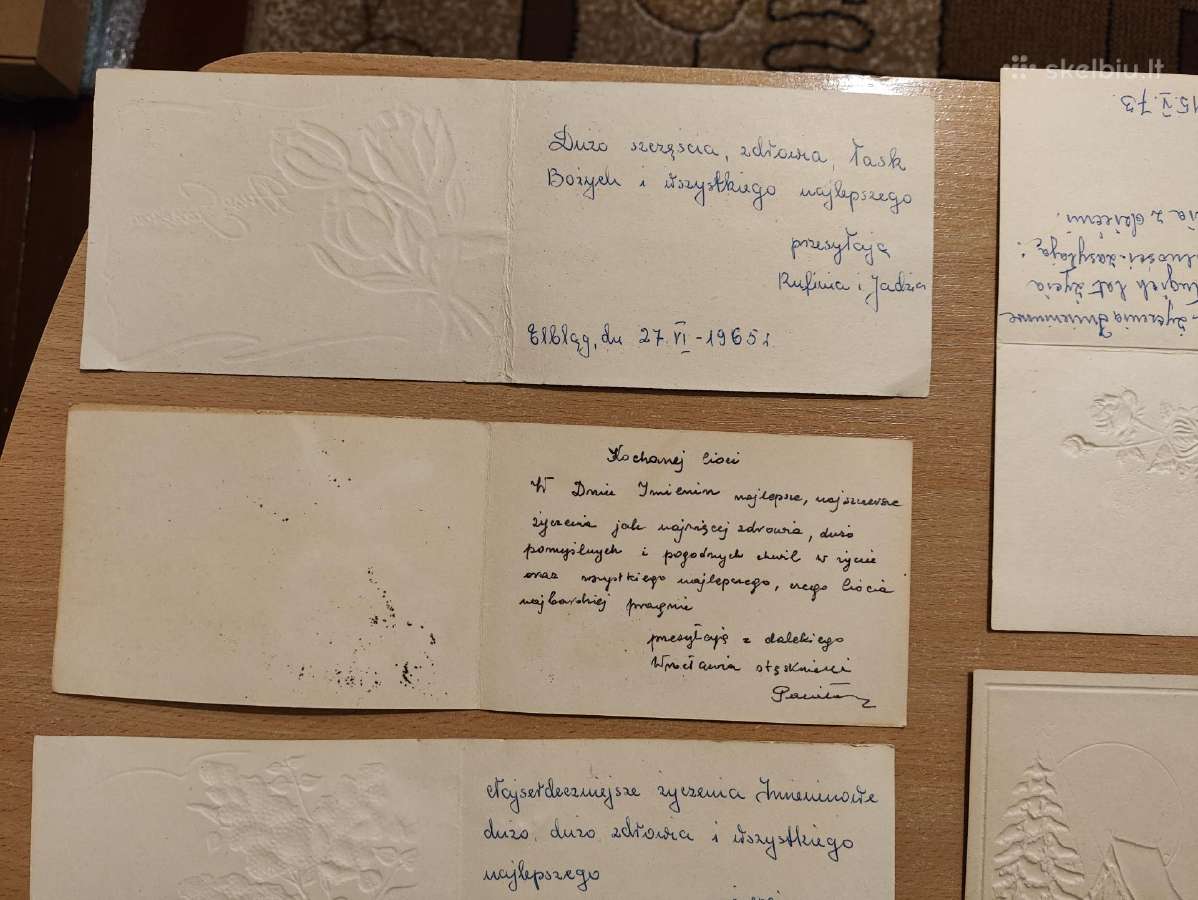 Dużo szczęścia, zdrowia, łask
Bożych i wszystkiego najlepszego
przesyłają
Rufinia i Jadzia
Elbląg, dn 27 VI - 1965 r.
Kochanej Cioci
W Dniu Imienin najlepsze, najszczersze
życzenia jak najwięcej zdrowia, dużo
pomyślnych i pogodnych chwil w życiu
oraz wszystkiego najlepszego, czego Ciocia
najbardziej pragnie
przesyłają z dalekiego
Wrocławia stęsknieni
Najserdeczniejsze życzenia Imieninowe
dużo, dużo zdrowia i wszystkiego
najlepszego
skelbiu.lt
życzenia Imieninowe
lat życia
zasyłają
z dziećmi.
15.V.73